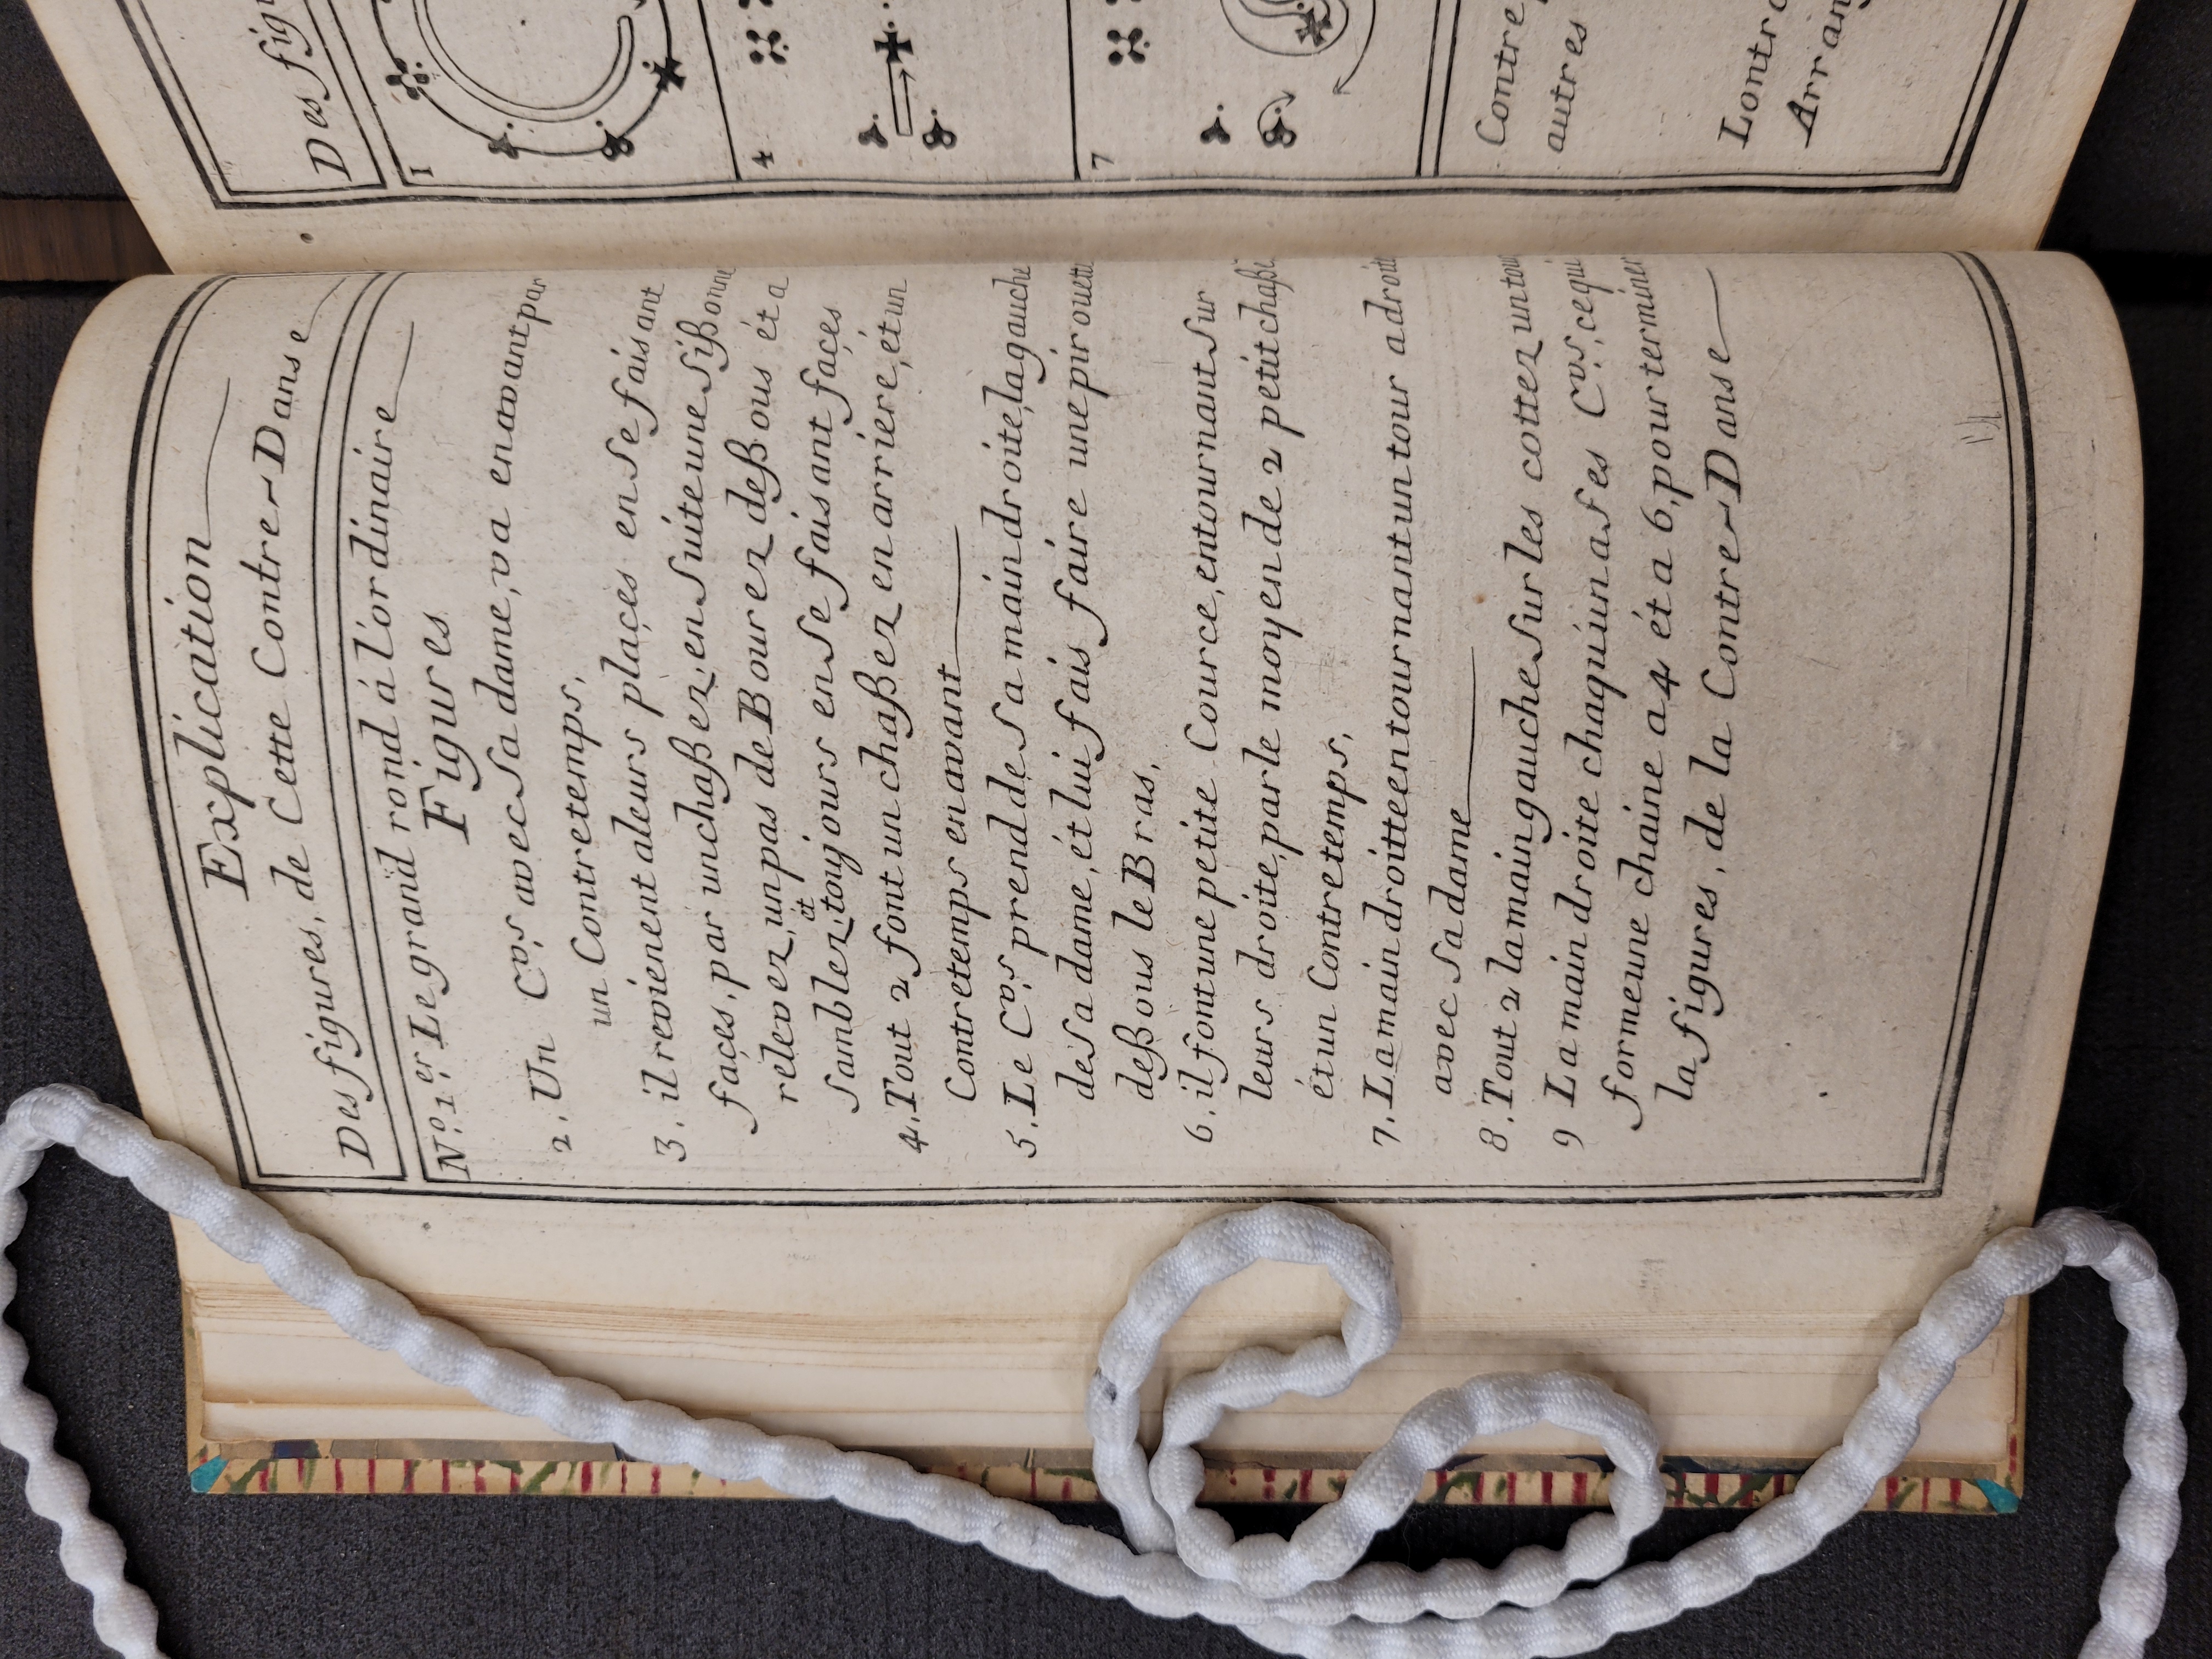 Explication
Des figures, de Cette Contre-Danse
No. 1.er Le grand rond á l'ordinaire
Figures
2. Un Cvs. avec sa dame, va en avant par
un Contretemps,
3. il revienent a leurs plaçes en se faisant
façes, par un chaßez, en suite une sißonne
relevez, un pas de Bourez deßous ét a
samblez, et toujours en se faisant façes
4. Tout 2 font un chaßez en arriere, ét un
Contretemps en avant
5. Le Cvs. prend de sa main droite, la gauche
de sa dame, ét lui fais faire une pirouette
deßous le Bras,
6. il font une petite Cource, en tournant sur
leurs droite, par le moyen de 2 petit chaßé
ét un Contretemps,
7. La main droitte en tournant un tour a droite
avec sa dame
8. Tout 2 la main gauche sur les cottez un tour
9 La main droite chaquun a ses Cvs., ce qui
forme une chaine a 4 ét a 6, pour terminer
la figures, de la Contre-Danse
Des fig
1
4
7
Contre
autres
Lontr
Arran